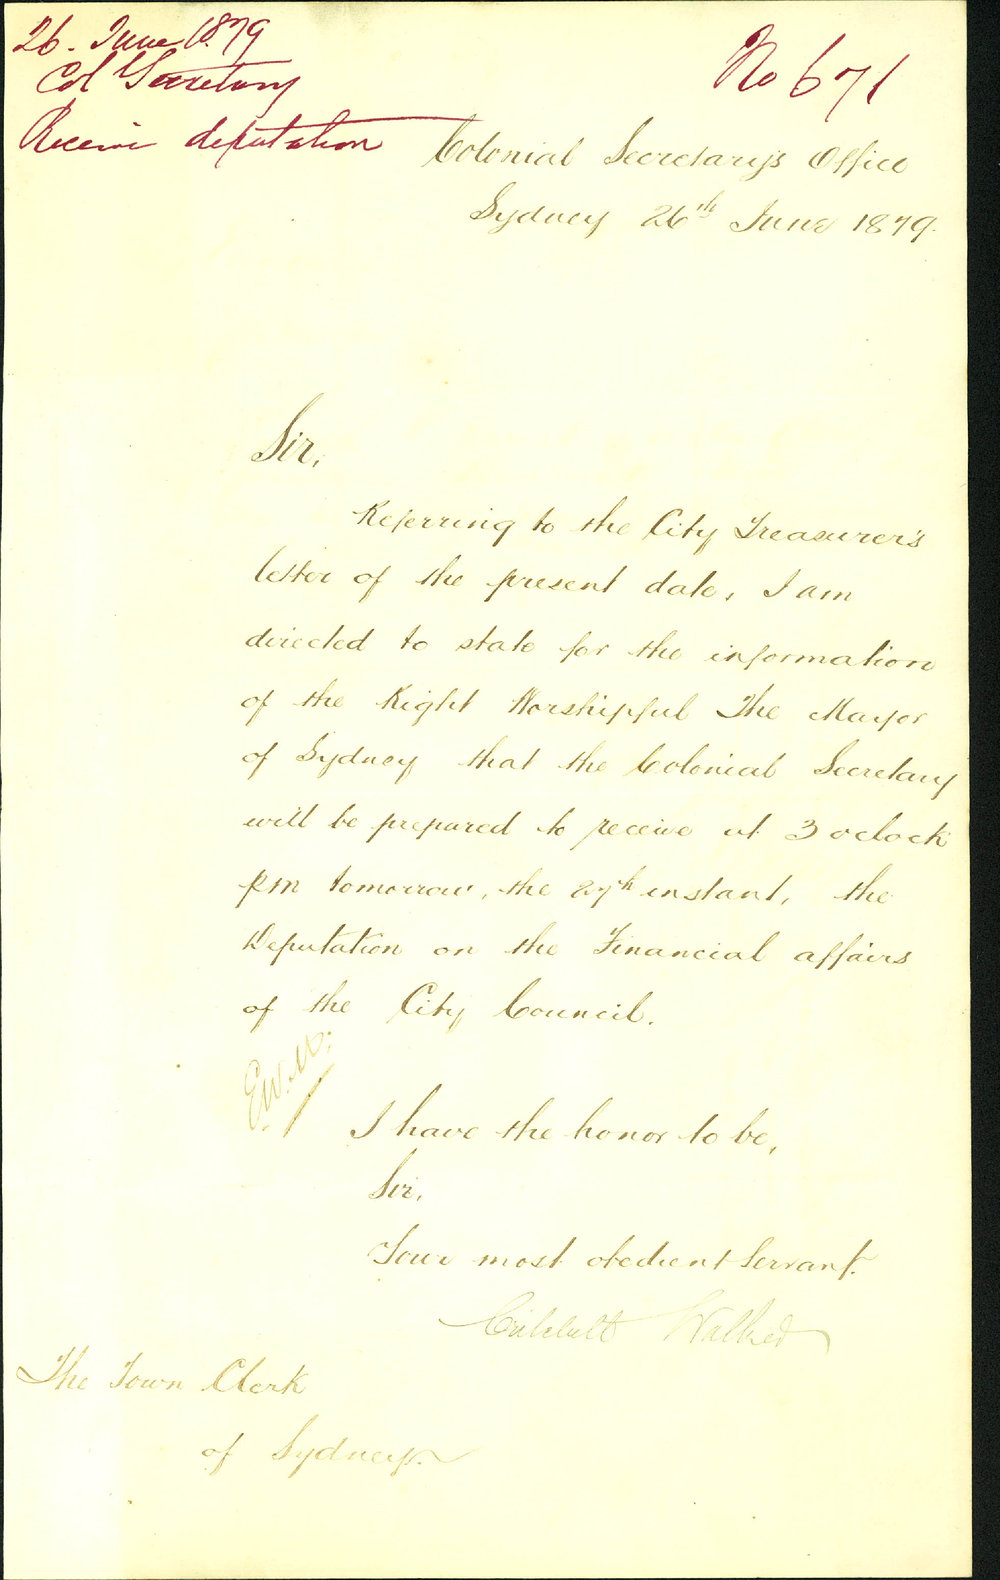 26. June 1879
Col Secretary
Receive deputation
No 671
Colonial Secretary's Office
Sydney 26th June 1879.
Sir,
Referring to the City Treasurer's
letter of the present date, I am
directed to state for the information
of the Right Worshipful The Mayor
of Sydney that the Colonial Secretary
will be prepared to receive at 3 oclock
pm tomorrow, the 27th instant, the
Deputation on the Financial affairs
of the City Council.
E.W.M.
I have the honor to be,
Sir,
Your most obedient Servant.
Critchett Walker
The Town Clerk
of Sydney.